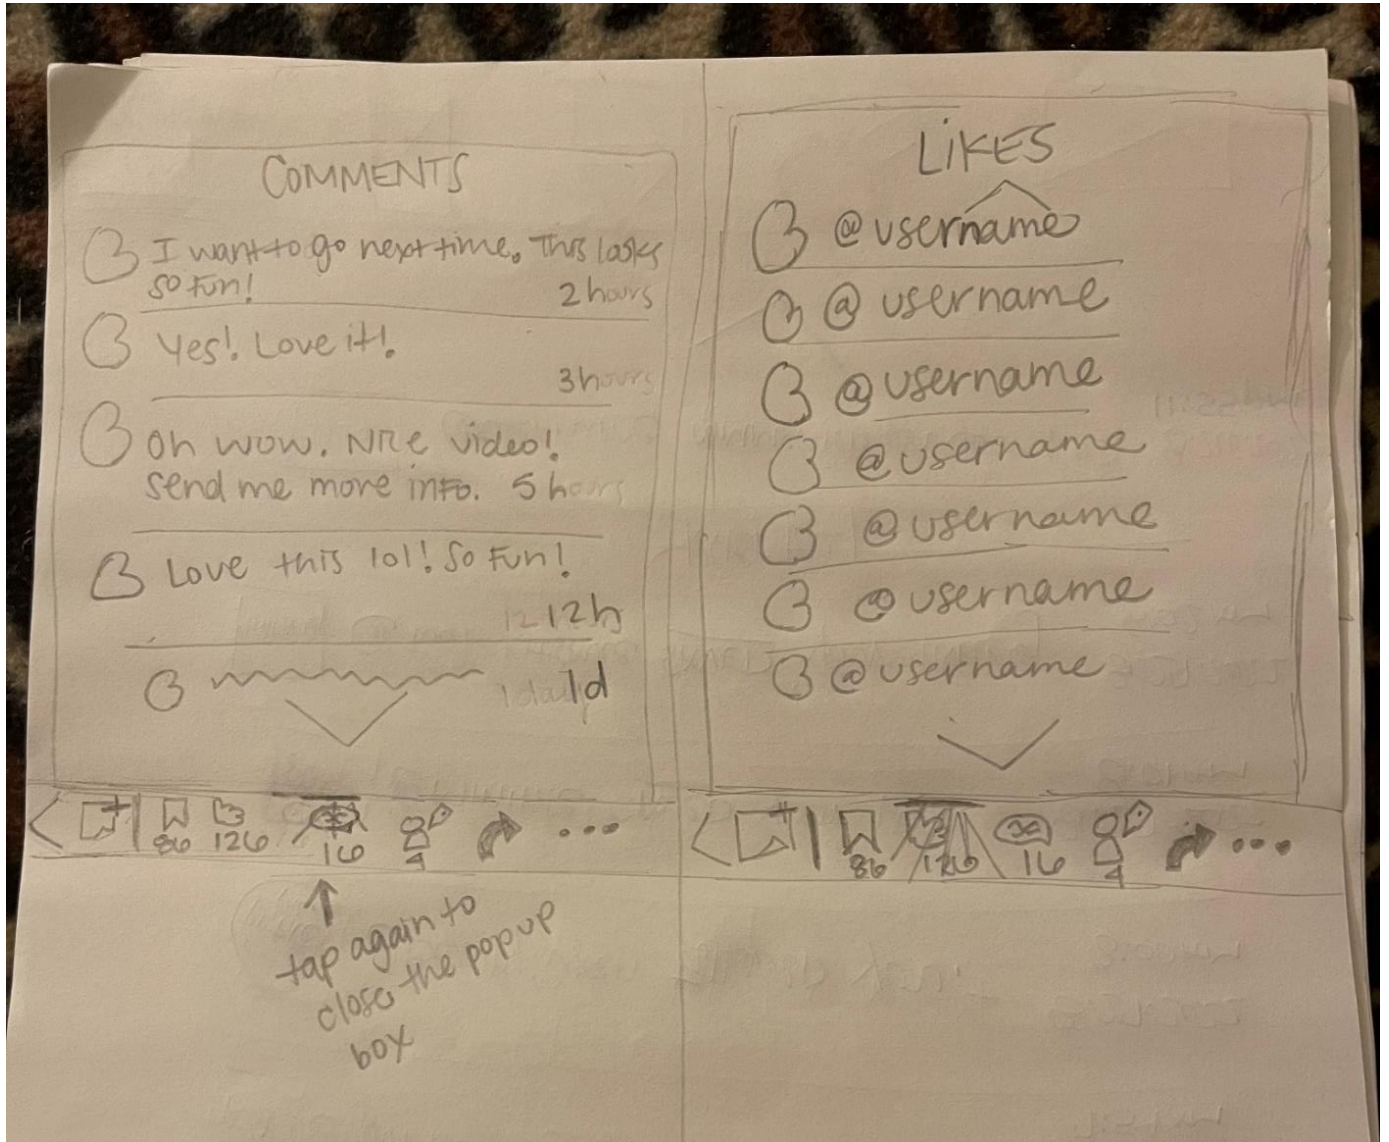 COMMENTS
I want to go next time. This looks
so fun!
2 hours
Yes! Love it!
3 hours
Oh wow. Nice video!
Send me more info. 5 hours
Love this lol! So fun!
12 12h
1 day 1d
86 126 16 4
tap again to
close the pop up
box
LIKES
@username
@username
@username
@username
@username
@username
@username
86 126 16 4